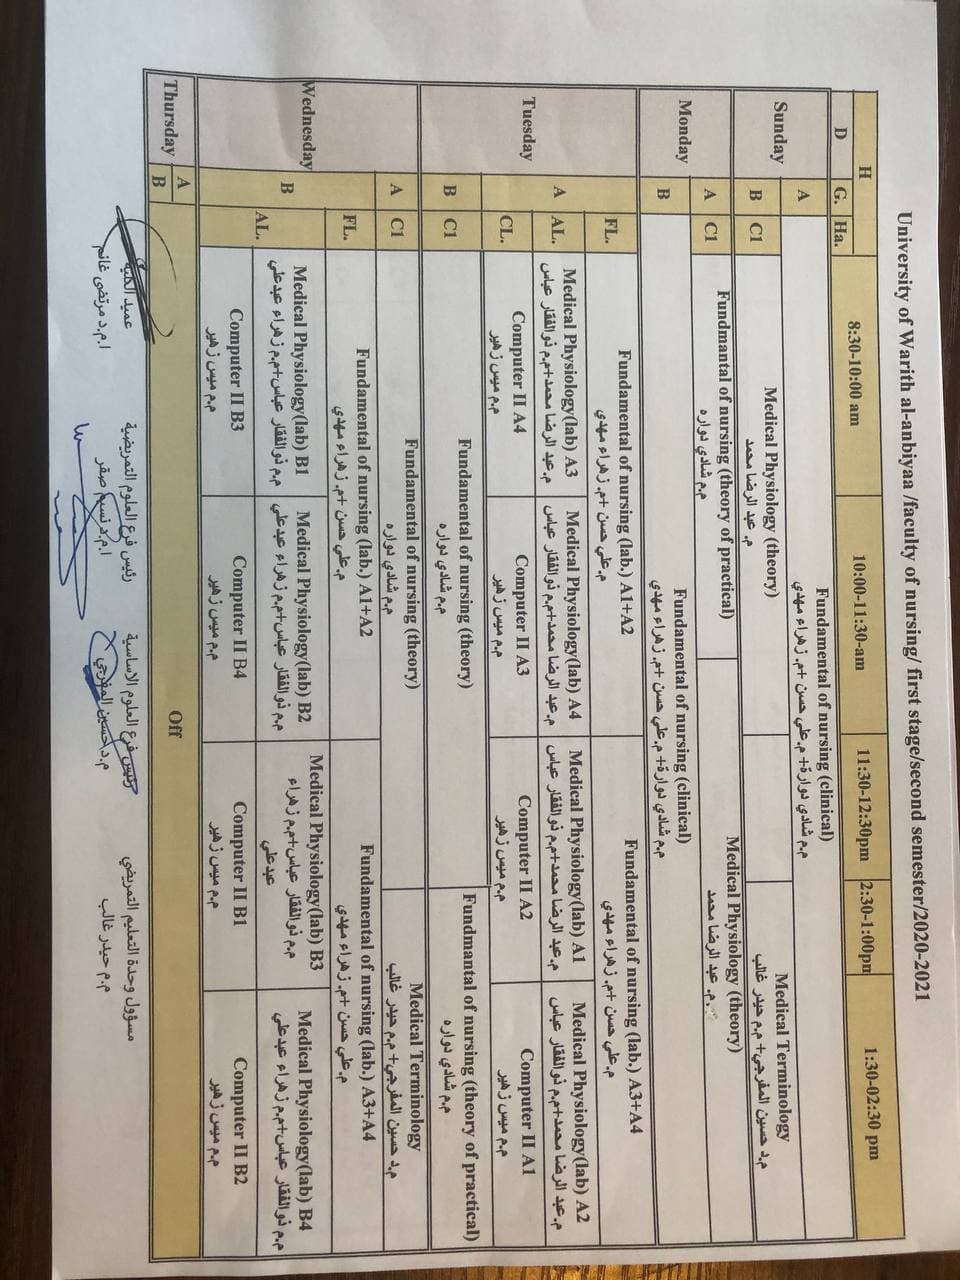 University of Warith al-anbiyaa /faculty of nursing/ first stage/second semester/2020-2021
H 8:30-10:00 am 10:00-11:30-am 11:30-12:30pm 2:30-1:00pm 1:30-02:30 pm
D G. Ha.
Sunday
A
Fundamental of nursing (clinical)
م.م شادي دوارة+ م.علي حسن +م. زهراء مهدي
B C1
Medical Physiology (theory)
م. عبد الرضا محمد
Medical Terminology
م.د حسين المفرجي+ م.م حيدر غالب
Monday
A C1
Fundmantal of nursing (theory of practical)
م.م شادي دواره
Medical Physiology (theory)
م. عبد الرضا محمد
B
Fundamental of nursing (clinical)
م.م شادي دوارة+ م.علي حسن +م. زهراء مهدي
Tuesday
A
FL.
Fundamental of nursing (lab.) A1+A2
م.علي حسن +م. زهراء مهدي
Fundamental of nursing (lab.) A3+A4
م.علي حسن +م. زهراء مهدي
AL.
Medical Physiology(lab) A3
م.عبد الرضا محمد+م.م ذوالفقار عباس
Medical Physiology(lab) A4
م.عبد الرضا محمد+م.م ذوالفقار عباس
Medical Physiology(lab) A1
م.عبد الرضا محمد+م.م ذوالفقار عباس
Medical Physiology(lab) A2
م.عبد الرضا محمد+م.م ذوالفقار عباس
CL.
Computer II A4
م.م ميس زهير
Computer II A3
م.م ميس زهير
Computer II A2
م.م ميس زهير
Computer II A1
م.م ميس زهير
B C1
Fundamental of nursing (theory)
م.م شادي دواره
Fundmantal of nursing (theory of practical)
م.م شادي دواره
Wednesday
A C1
Fundamental of nursing (theory)
م.م شادي دواره
Medical Terminology
م.د حسين المفرجي+ م.م حيدر غالب
B
FL.
Fundamental of nursing (lab.) A1+A2
م.علي حسن +م. زهراء مهدي
Fundamental of nursing (lab.) A3+A4
م.علي حسن +م. زهراء مهدي
AL.
Medical Physiology(lab) B1
م.م ذوالفقار عباس+م.م زهراء عبدعلي
Medical Physiology(lab) B2
م.م ذوالفقار عباس+م.م زهراء عبدعلي
Medical Physiology(lab) B3
م.م ذوالفقار عباس+م.م زهراء
عبدعلي
Medical Physiology(lab) B4
م.م ذوالفقار عباس+م.م زهراء عبدعلي
Computer II B3
م.م ميس زهير
Computer II B4
م.م ميس زهير
Computer II B1
م.م ميس زهير
Computer II B2
م.م ميس زهير
Thursday
A
B
Off
عميد الكلية
ا.م.د مرتضى غانم
رئيس فرع العلوم التمريضية
ا.م.د نسيم صقر
رئيس فرع العلوم الاساسية
م.د حسين المفرجي
مسؤول وحدة التعليم التمريضي
م.م حيدر غالب